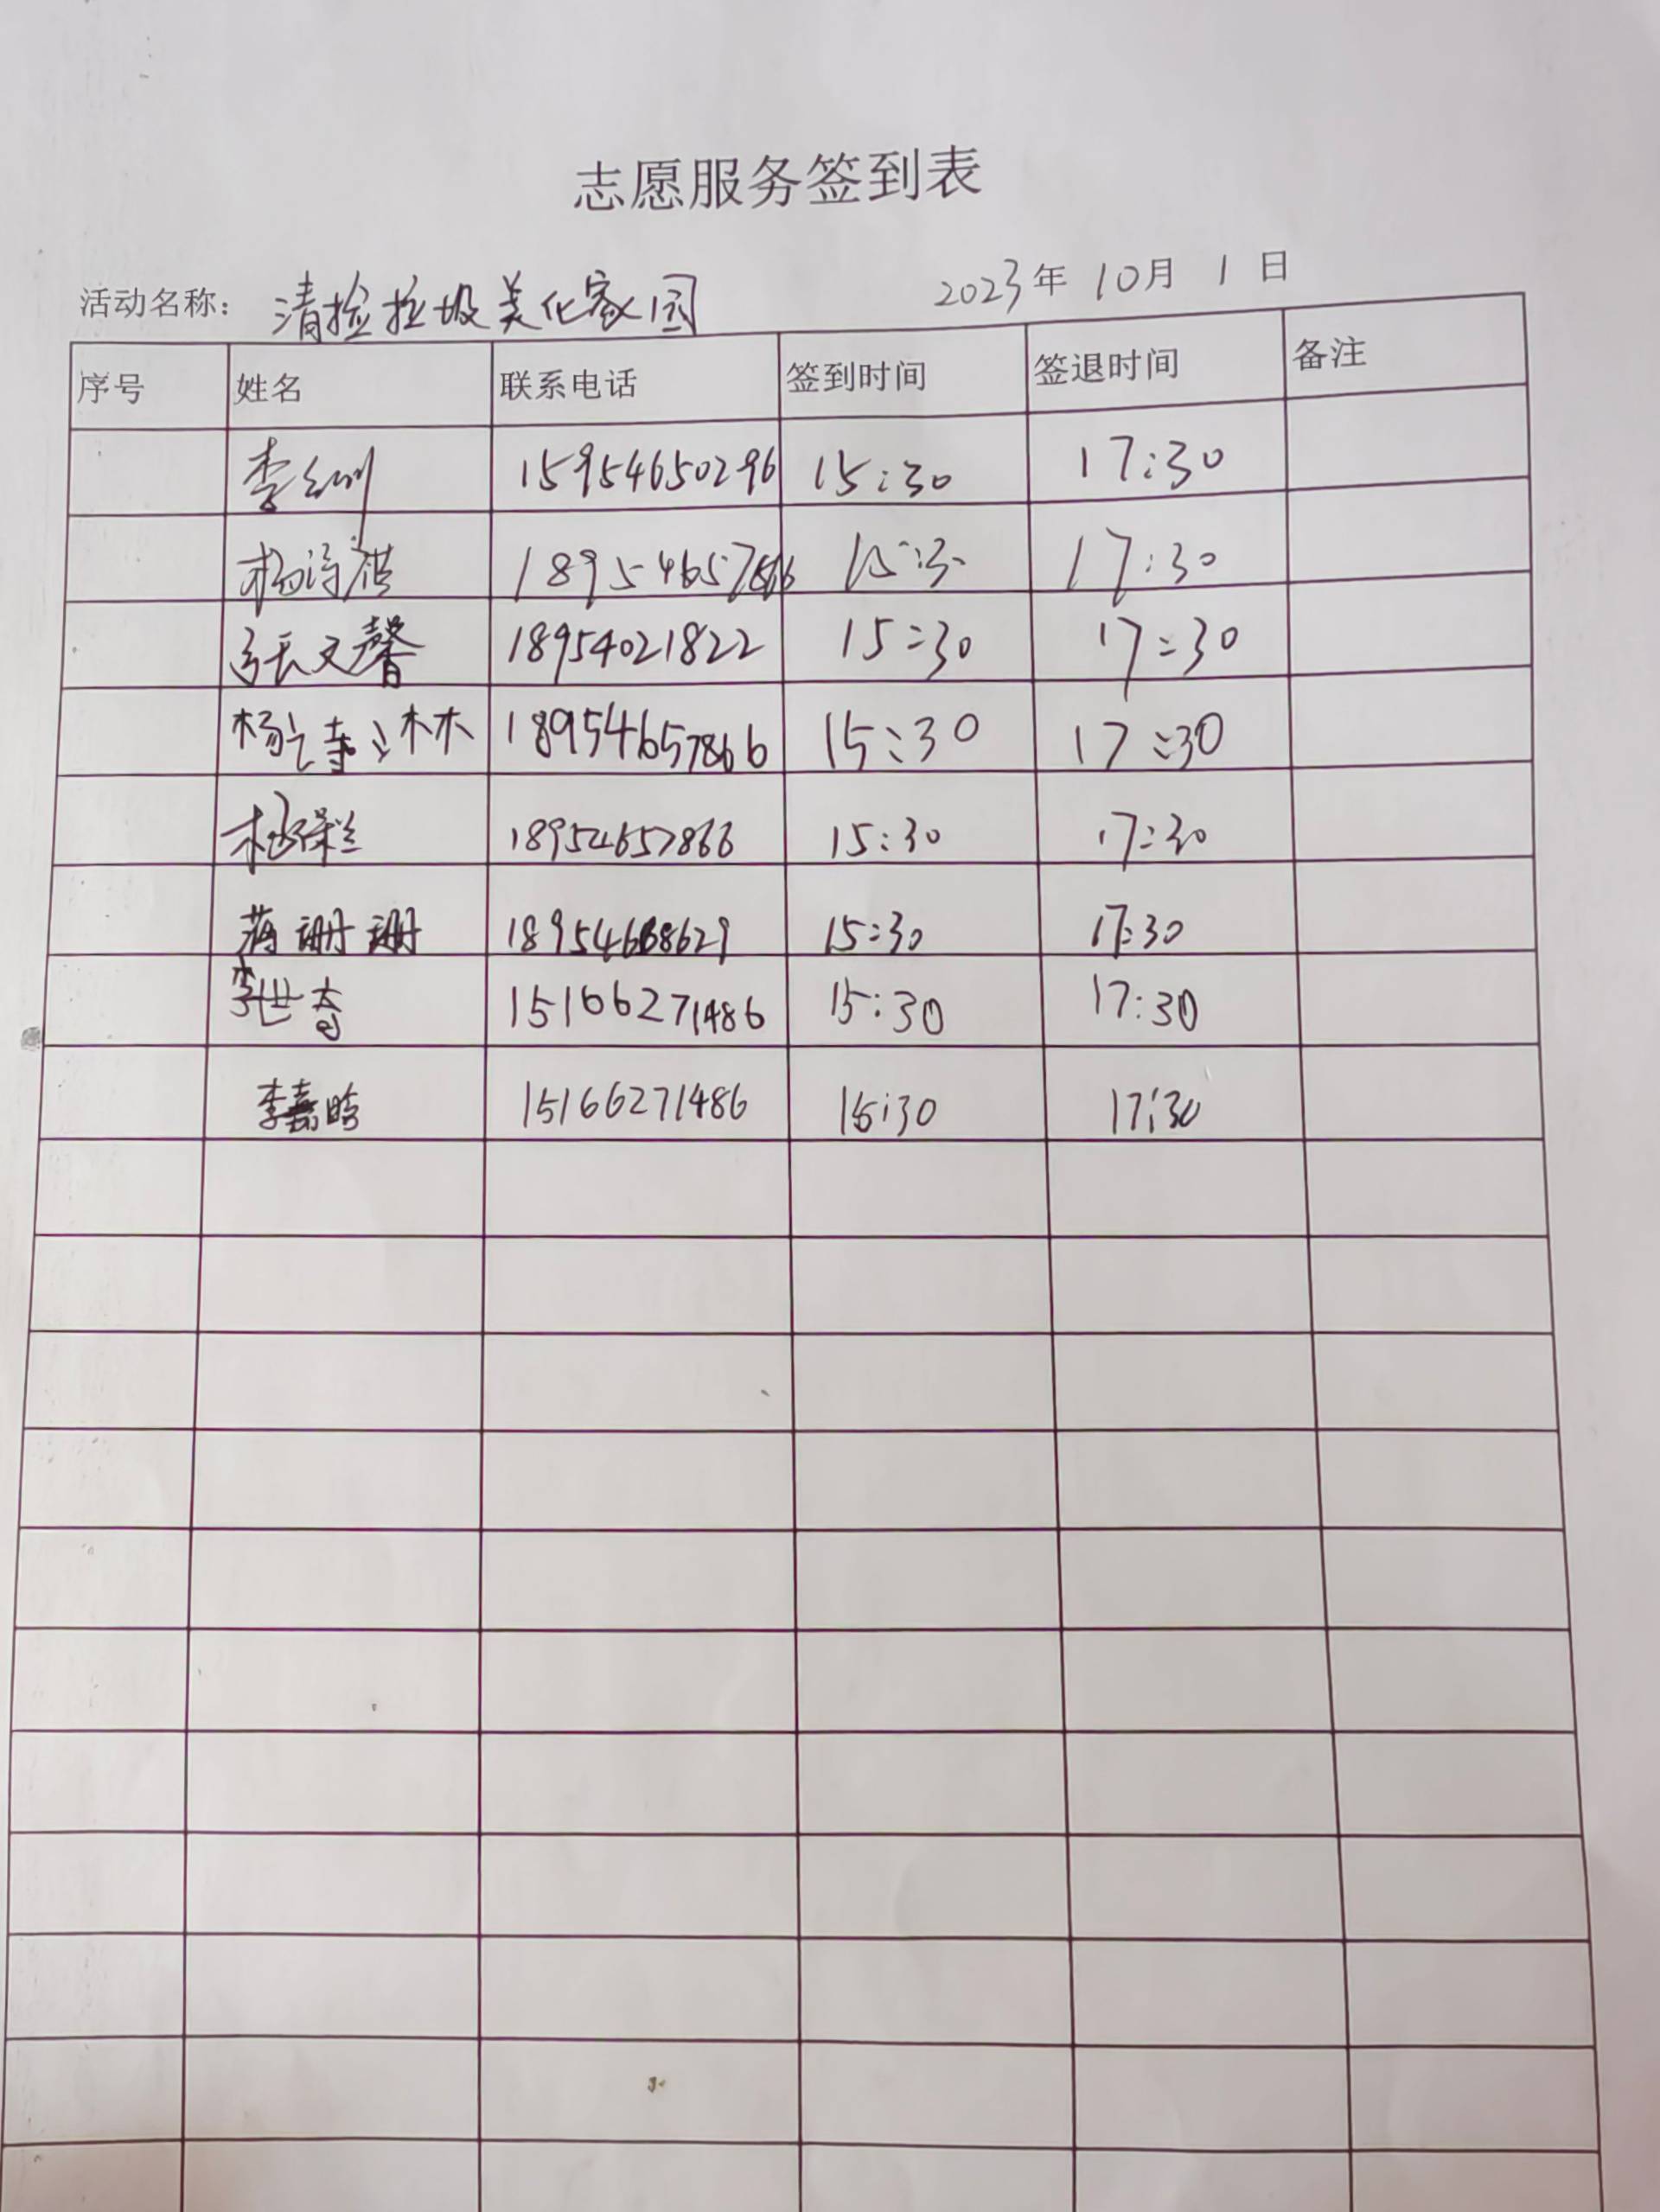 志愿服务签到表
活动名称: 清捡垃圾美化家园 2023年 10月 1 日
序号 姓名 联系电话 签到时间 签退时间 备注
李 15954650296 15:30 17:30
杨 18954657866 15:30 17:30
张文馨 18954021822 15:30 17:30
杨诗林 18954657866 15:30 17:30
杨保兰 18954657866 15:30 17:30
蒋珊珊 18954668629 15:30 17:30
李世奇 15166271486 15:30 17:30
李嘉晗 15166271486 15:30 17:30